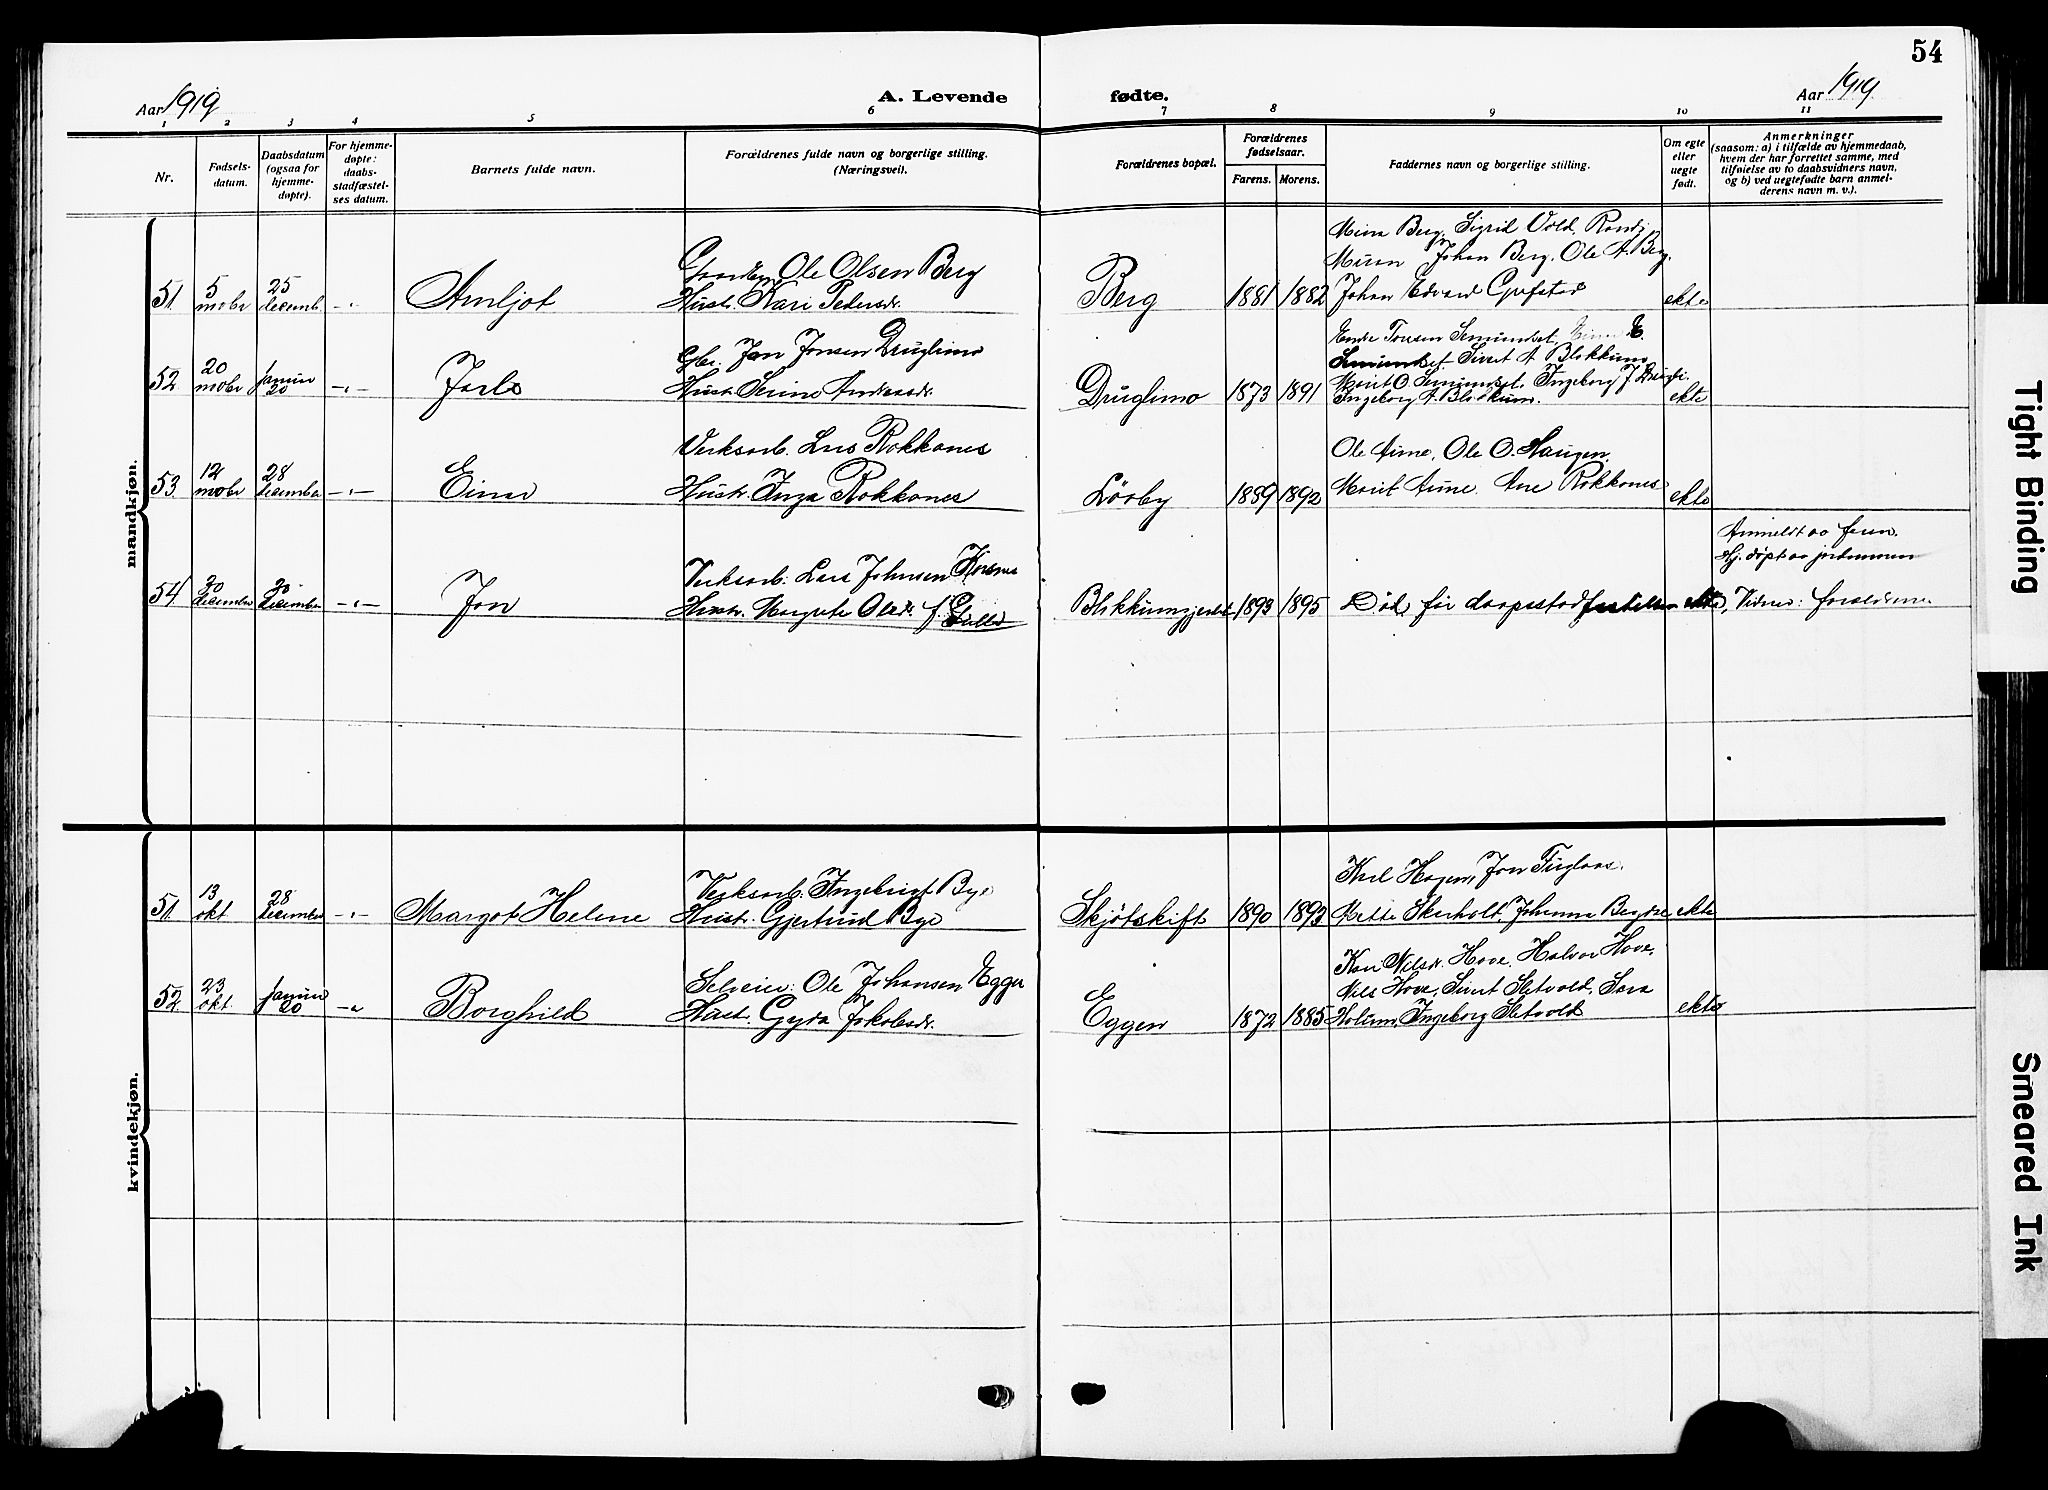 54
Aar 1919
A. Levende fødte.
Aar 1919.
1 2 3 4 5 6 7 8 9 10 11
Nr.
Fødsels-
datum.
Daabsdatum
(ogsaa for
hjemme-
døpte).
For hjemme-
døpte:
daabs-
stadfæstel-
ses datum.
Barnets fulde navn.
Forældrenes fulde navn og borgerlige stilling.
(Næringsvei).
Forældrenes bopæl.
Forældrenes
fødselsaar.
Farens. Morens.
Faddernes navn og borgerlige stilling.
Om egte
eller
uegte
født.
Anmerkninger
(saasom: a) i tilfælde av hjemmedaab,
hvem der har forrettet samme, med
tilføielse av to daabsvidners navn,
og b) ved uegtefødte barn anmel-
derens navn m. v.).
mandkjøn.
51 5 novbr 25 decemb. -"- Arnljot
Ole Olsen Berg
Hustr. Kari Pedersdr.
Berg 1881 1882
Mina Berg, Sigrid Vold, Randi
Johan Berg, Ole A. Berg,
Johan Edvard
ekte
52 20 novbr Januar 20 -"- Jarle
Gbr. Jon Jonsen Druglimo
Hustr. Serine Andersdr.
Druglimo 1873 1891
Endre Toresen Semundset, E.
Semundset, Sivert A. Blokkum
Marit O. Semundset, Ingeborg J.
Ingeborg A. Blokkum.
ekte
53 12 novbr 28 december -"- Einar
Verksarb. Lars Rokkones
Hustr. Inga Rokkones
Lörby 1889 1892
Ole Aune, Ole O. Haugen,
Marit Aune, Ane Rokkones
ekte
54 20 december 20 december -"- Jon
Verksarb. Lars Johnsen
Hustr. Margrete Olsdr. f.
1893 1895
Död før daapsstadfestelsen ekte
Anmeldt av faren.
Hj. döpt av jordmoren
Vidner: foreldrene
kvindekjøn.
51 13 okt. 28 december -"- Margot Helene
Verksarb. Ingebrigt Bye
Hustr. Gjertrud Bye
Skjötskift 1890 1893
Karl Hagen, Jon Fuglaas,
Mette Skerholt, Johanna
ekte
52 23 okt. Januar 20 -"- Borghild
Selveier: Ole Johansen Eggen
Hust. Gyda Jakobsdr.
Eggen 1872 1885
Kari Nilsdr. Hove, Halvor Hove,
Nils Hove, Sivert Sletvold, Sara
Holum, Ingeborg Sletvold
ekte
Tight Binding
Smeared Ink